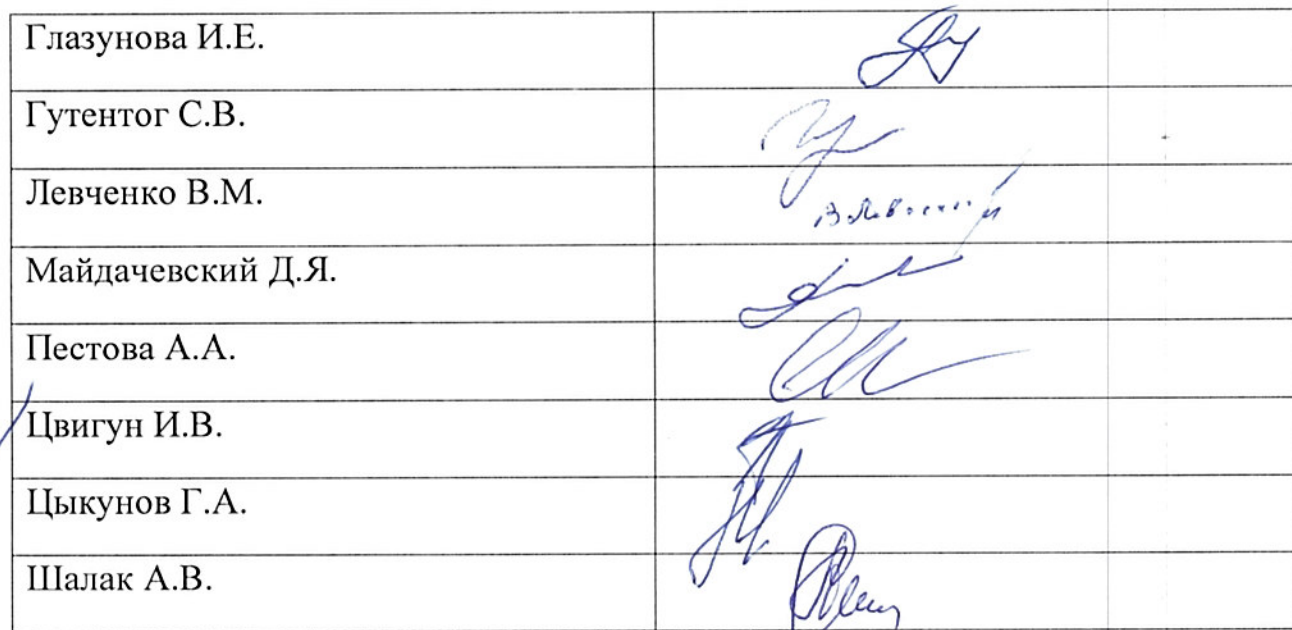 Глазунова И.Е.
Гутентог С.В.
Левченко В.М.
Майдачевский Д.Я.
Пестова А.А.
Цвигун И.В.
Цыкунов Г.А.
Шалак А.В.